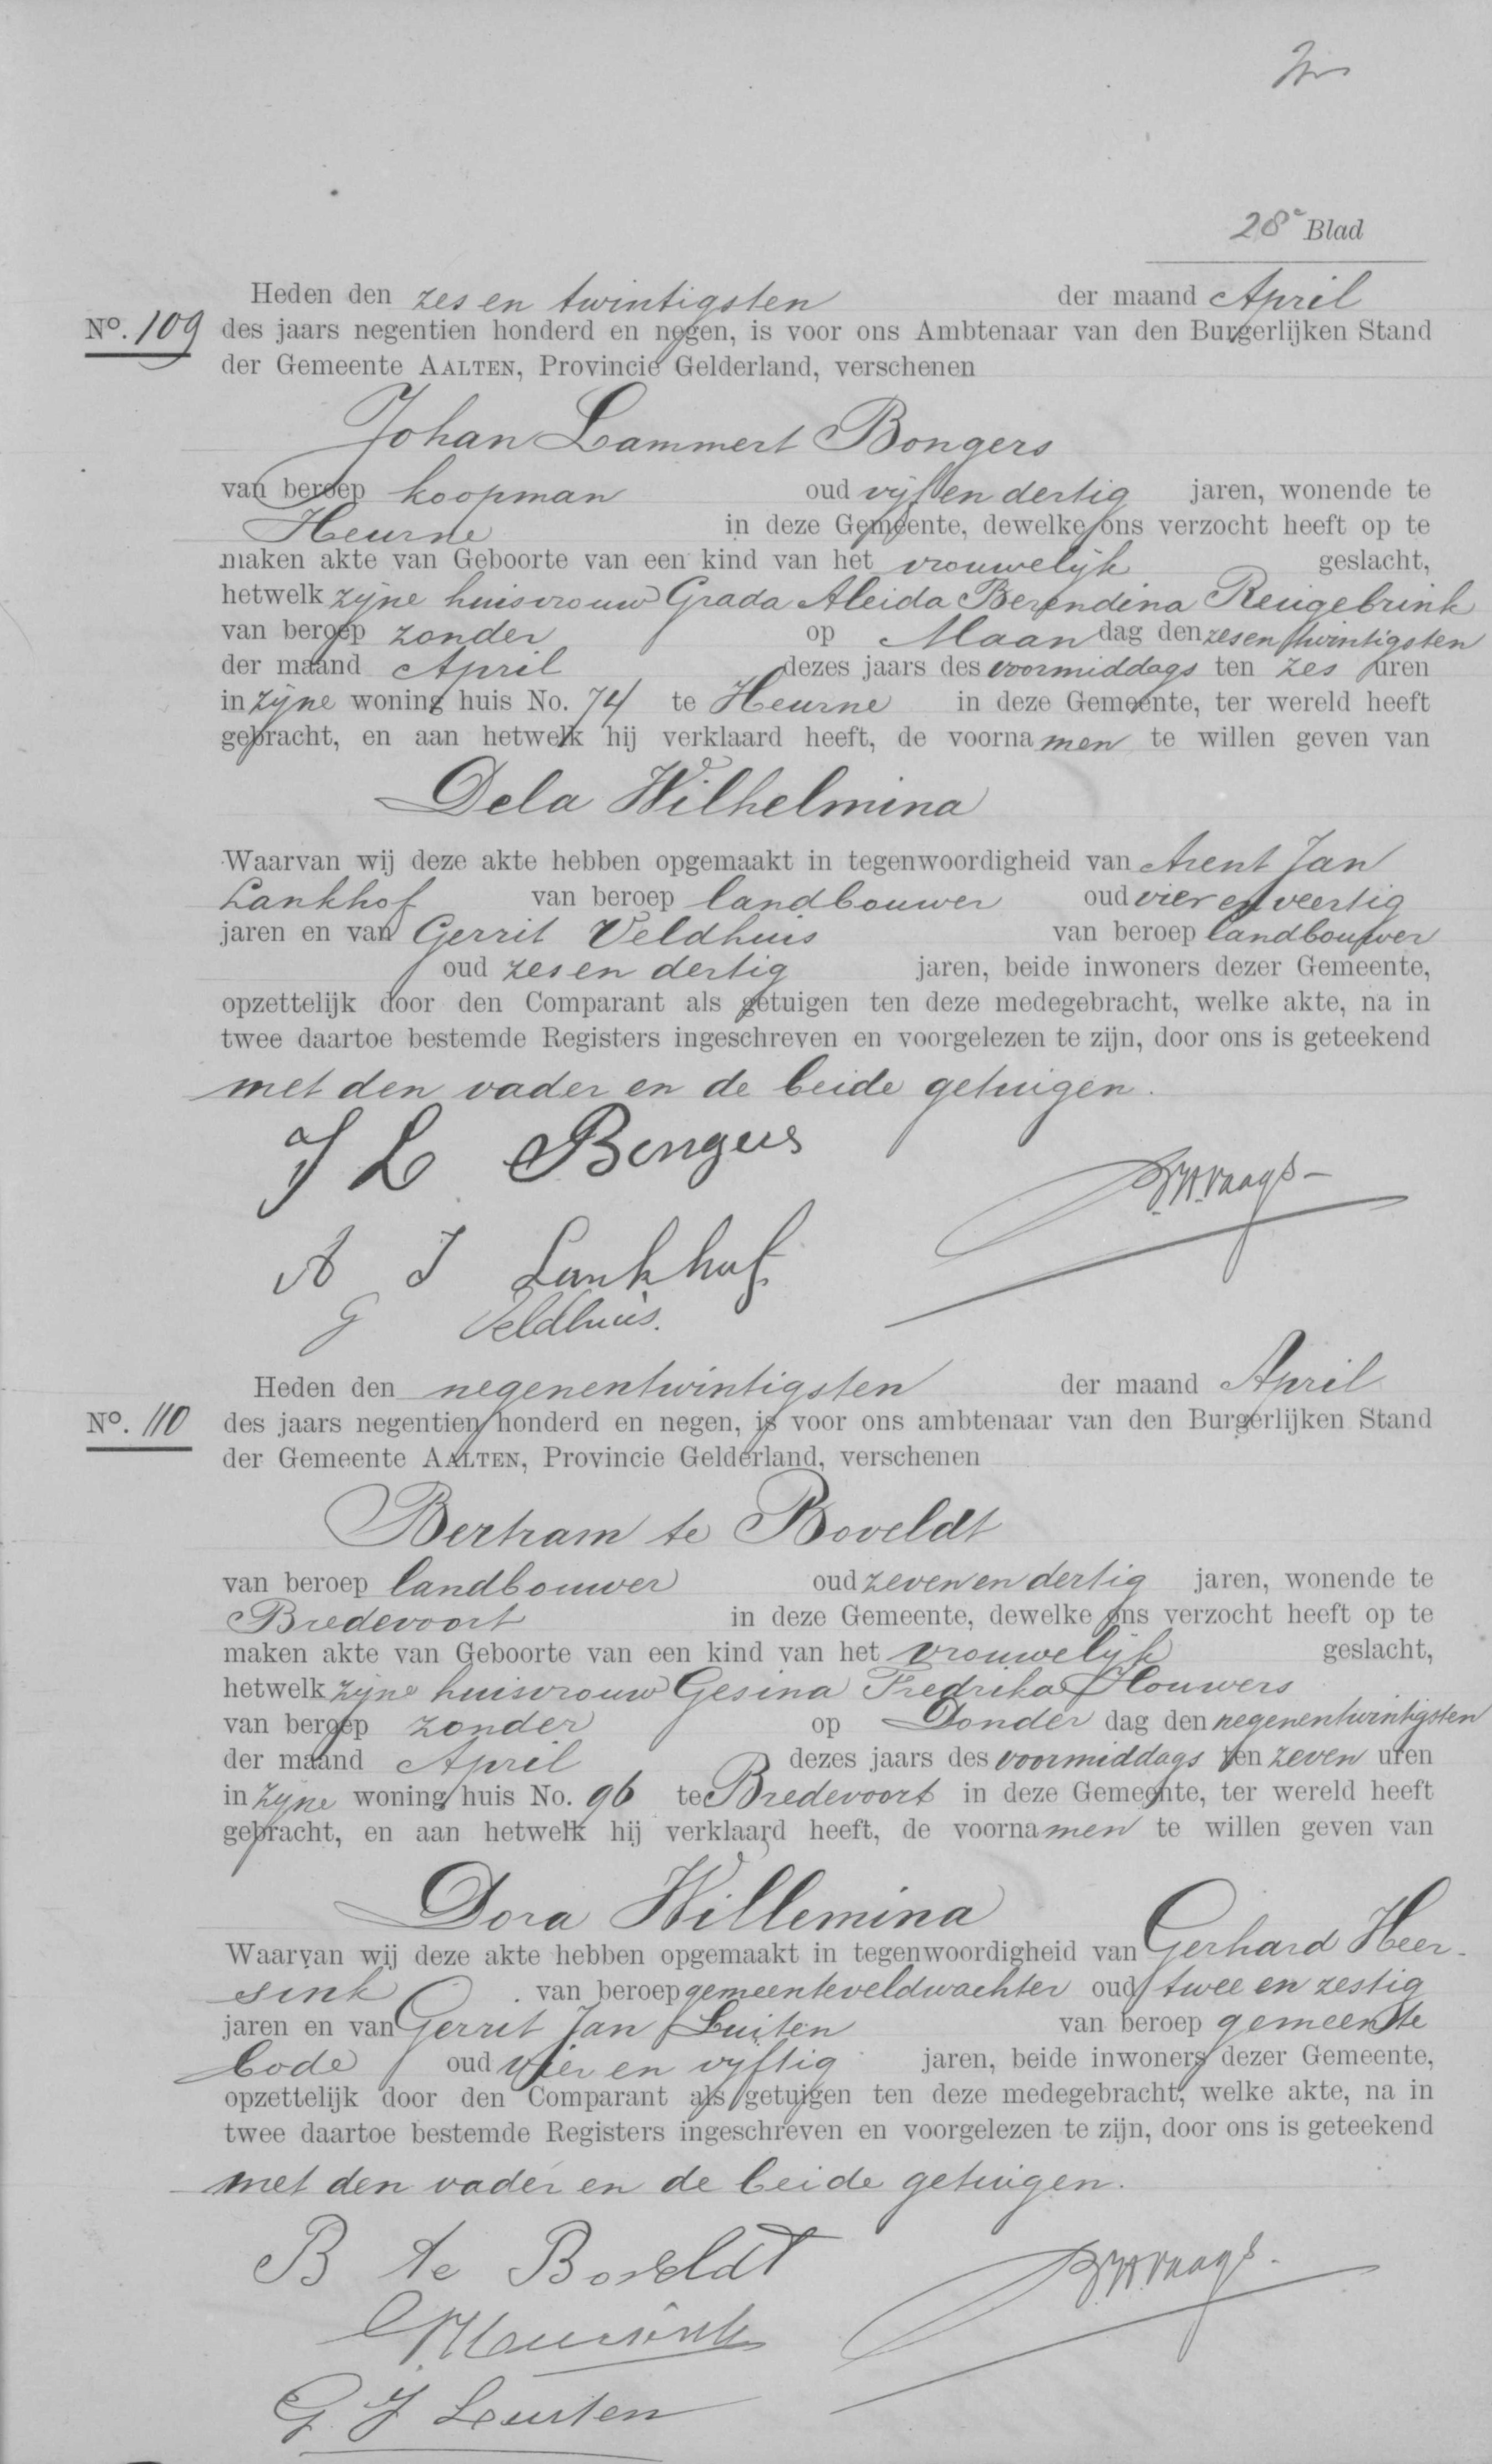 28e Blad
Heden den zes en twintigsten der maand April
No. 109 des jaars negentien honderd en negen, is voor ons Ambtenaar van den Burgerlijken Stand
der Gemeente AALTEN, Provincie Gelderland, verschenen
Johan Lammert Bongers
van beroep koopman oud vijf en dertig jaren, wonende te
Heurne in deze Gemeente, dewelke ons verzocht heeft op te
maken akte van Geboorte van een kind van het vrouwelijk geslacht,
hetwelk zijne huisvrouw Grada Aleida Berendina Reugebrink
van beroep zonder op Maandag den zes en twintigsten
der maand April dezes jaars des voormiddags ten zes uren
in zijne woning huis No. 74 te Heurne in deze Gemeente, ter wereld heeft
gebracht, en aan hetwelk hij verklaard heeft, de voornamen te willen geven van
Dela Wilhelmina
Waarvan wij deze akte hebben opgemaakt in tegenwoordigheid van Arent Jan
Lankhof van beroep landbouwer oud vier en veertig
jaren en van Gerrit Veldhuis van beroep landbouwer
oud zes en dertig jaren, beide inwoners dezer Gemeente,
opzettelijk door den Comparant als getuigen ten deze medegebracht, welke akte, na in
twee daartoe bestemde Registers ingeschreven en voorgelezen te zijn, door ons is geteekend
met den vader en de beide getuigen.
J L Bongers
A J Lankhof
G Veldhuis.
Heden den negenentwintigsten der maand April
No. 110 des jaars negentien honderd en negen, is voor ons ambtenaar van den Burgerlijken Stand
der Gemeente AALTEN, Provincie Gelderland, verschenen
Bertram te Boveldt
van beroep landbouwer oud zeven en dertig jaren, wonende te
Bredevoort in deze Gemeente, dewelke ons verzocht heeft op te
maken akte van Geboorte van een kind van het vrouwelijk geslacht,
hetwelk zijne huisvrouw Gesina Fredrika Houwers
van beroep zonder op Donderdag den negenentwintigsten
der maand April dezes jaars des voormiddags ten zeven uren
in zijne woning huis No. 96 te Bredevoort in deze Gemeente, ter wereld heeft
gebracht, en aan hetwelk hij verklaard heeft, de voornamen te willen geven van
Dora Willemina
Waarvan wij deze akte hebben opgemaakt in tegenwoordigheid van Gerhard Heer-
sink van beroep gemeenteveldwachter oud twee en zestig
jaren en van Gerrit Jan Luiten van beroep gemeente
bode oud vier en vijftig jaren, beide inwoners dezer Gemeente,
opzettelijk door den Comparant als getuigen ten deze medegebracht, welke akte, na in
twee daartoe bestemde Registers ingeschreven en voorgelezen te zijn, door ons is geteekend
met den vader en de beide getuigen.
B te Boveldt
G J Luiten